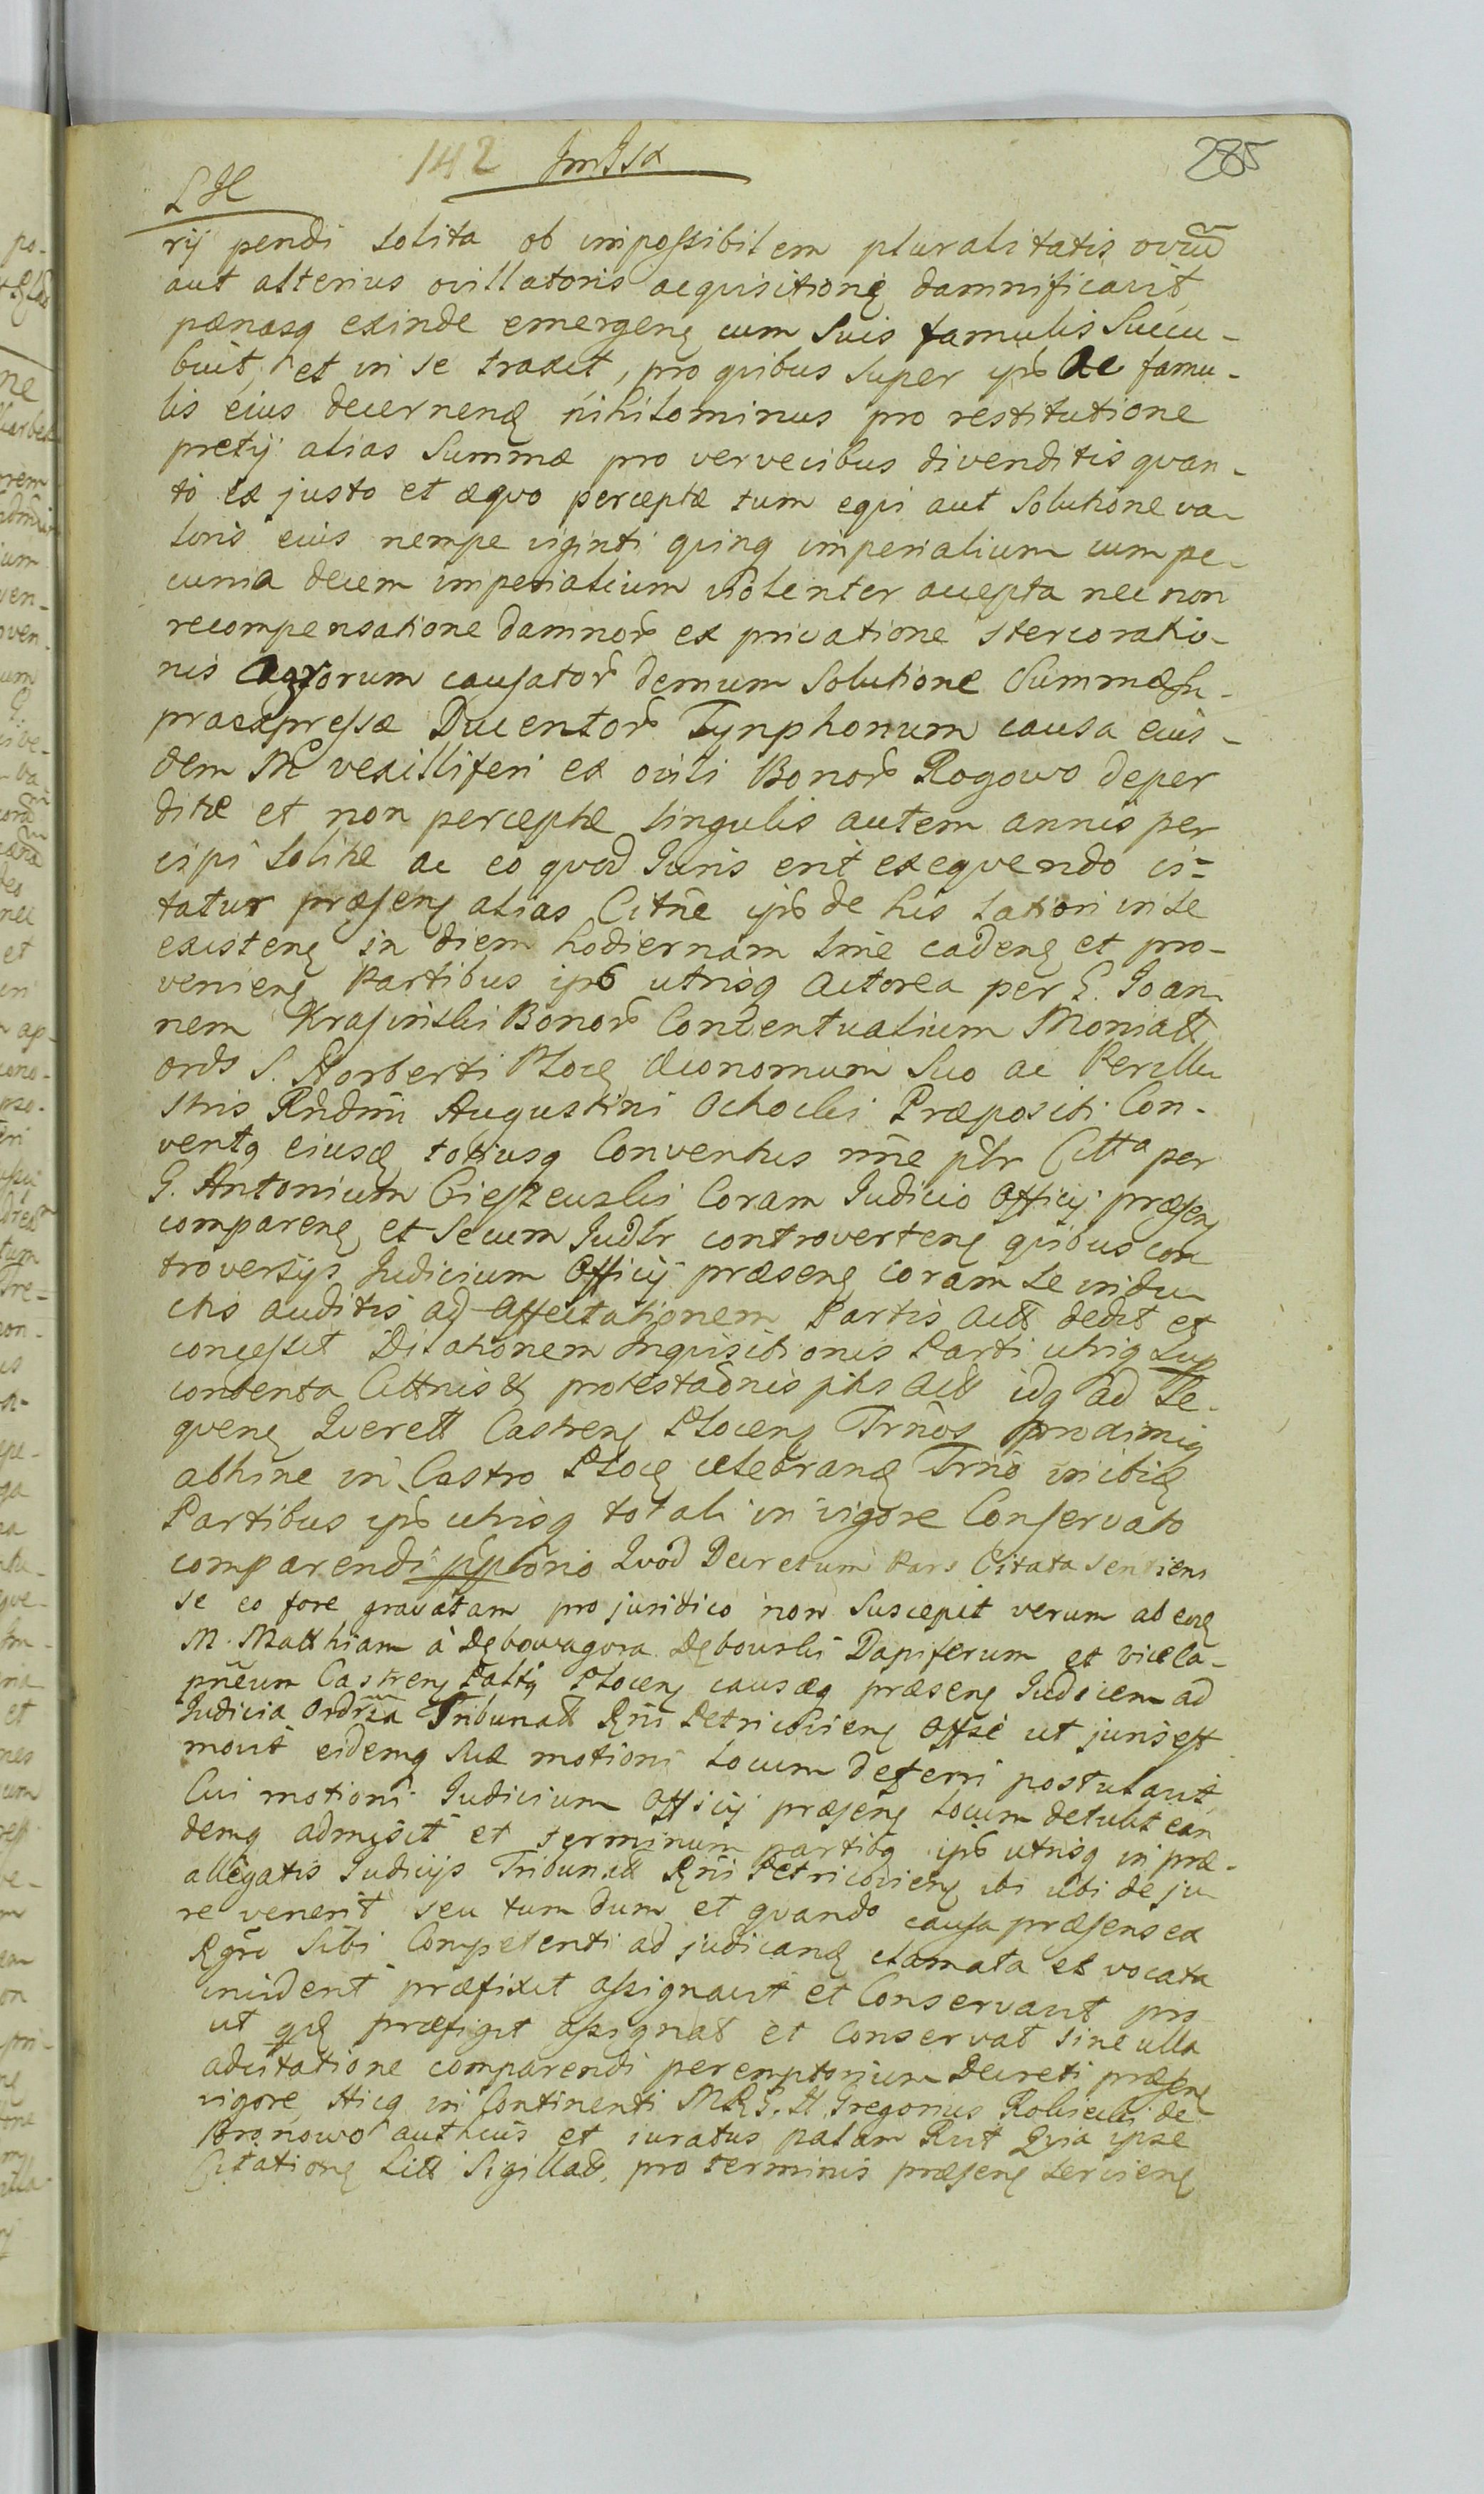 142 285
rij pendi solita ob impossibilem pluralitatis oviũ
aut alterius ovillatoris acquisitionę damnificavit
pœnasq exinde emergenę cum suis famulis succu-
buit, et in se traxit, pro quibus super ipõ ac famu-
lis eius decernenę nihilominus pro restitutione
pretij alias summæ pro vervecibus divenditis quan-
to ex justo et æquo perceptæ tum equi aut solutione va-
loris eius nempe viginti quinq imperialium cum pe-
cunia decem imperialium violenter accepta nec non
recompensatione damnor̃ ex privatione stercoratio-
nis Agrorum causator̃ demum solutione Summæ su-
praexpressæ Ducentor̃ Tynphonum causa eius-
dem M vexilliferi ex ovili Bonor̃ Rogowo deper
ditæ et non perceptæ singulis autem annis per
cipi solitæ ac eo quod Juris erit exequendo ci=
tatur præsenę alias Citñe ipõ de his latiori in se
existenę in diem hodiernam sine cadenę et pro-
venienę Partibus ipõ utrisq Actorea per G. Joan-
nem Krasinski Bonor̃ Conventualium Monialł
ords S. Norberti Plocę œconomum suo ac Perillu
stris Rñdmi Augustini Ochocki Præpositi Con-
ventq eiusdę totiusq Conventus nñe ptr Citta per
G. Antonium Cieszewski Coram Judicio Officij præsenę
comparenę et secum Judłr controvertenę quibus con
troversijs Judicium Officij præsenę coram se indu
ctis auditis ad affectationem Partis Actł dedit et
concessit Dilationem Inquisitionis Parti utriq sup
contenta Cittnis et protestaõnis pñs Actł idq ad se-
quenę Querełł Castrenę Plocenę Trños proximiq
abhinc in Castro Plocę celebranę Trño in ibidę
Partibus ipõ utrisq totali in vigore Conservato
comparendi Quod Decretum Pars Citata sentiens
se eo fore gravatam pro juridico non suscepit verum ab eodę
M. Matthiam à Dębowagora Dębowski Dapiferum et viceca-
pñeum Castrenę Pałtq Plocenę causæq præsenę Judicem ad
Judicia Ordria Tribunalł Rñi Petricovienę Offse ut juris est
movit eidemq suæ motioni locum deferri postulavit,
Cui motioni Judicium Officij præsenę locum detulit ean
demq admisit et terminum partibq ipõ utrisq in præ-
allegatis Judicijs Tribunalł Rñi Petricovienę ibi ubi de ju
re venerit seu tum dum et quando causa præsens ex
Rgro sibi Competenti ad judicandę clamata et vocata
inciderit præfixit assignavit et Conservavit pro
ut præfigit assignat et conservat sine ulla
adcitatione comparendi peremptorium Decreti præsenę
vigore Hicq in Continenti Gregorius de
Bronowo authcus et iuratus palam Rvit Quia ipse
Citationę Litł Sigillatł pro terminis præsenę servienę